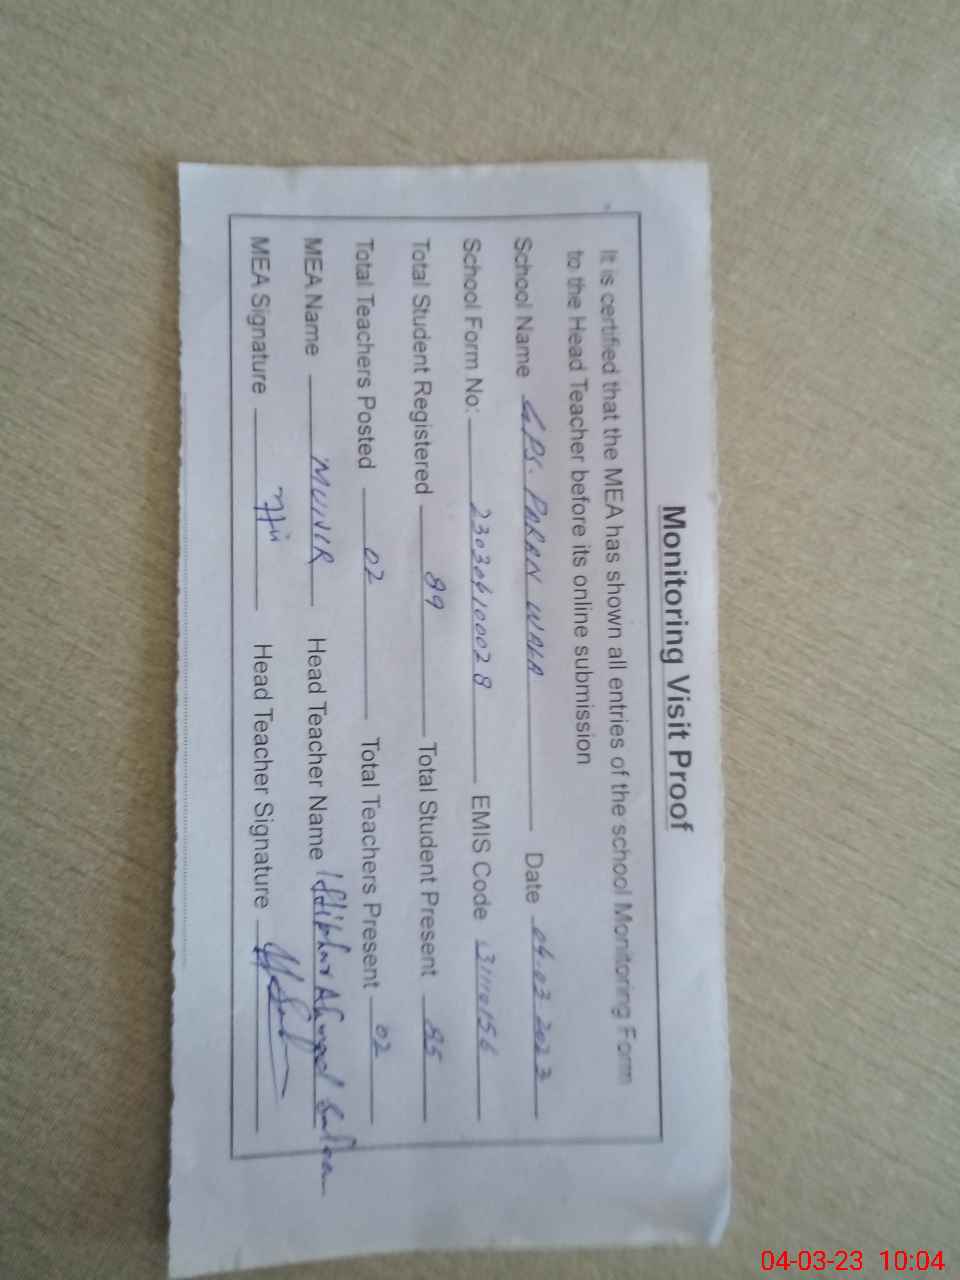 Monitoring Visit Proof
It is certified that the MEA has shown all entries of the school Monitoring Form
to the Head Teacher before its online submission
School Name GPS. PARAN WALA Date 04.03.2023
School Form No: 230306100028 EMIS Code 31110156
Total Student Registered 89 Total Student Present 85
Total Teachers Posted 02 Total Teachers Present 02
MEA Name MUNIR Head Teacher Name Iftikhar Ahmad
MEA Signature Head Teacher Signature
04-03-23 10:04